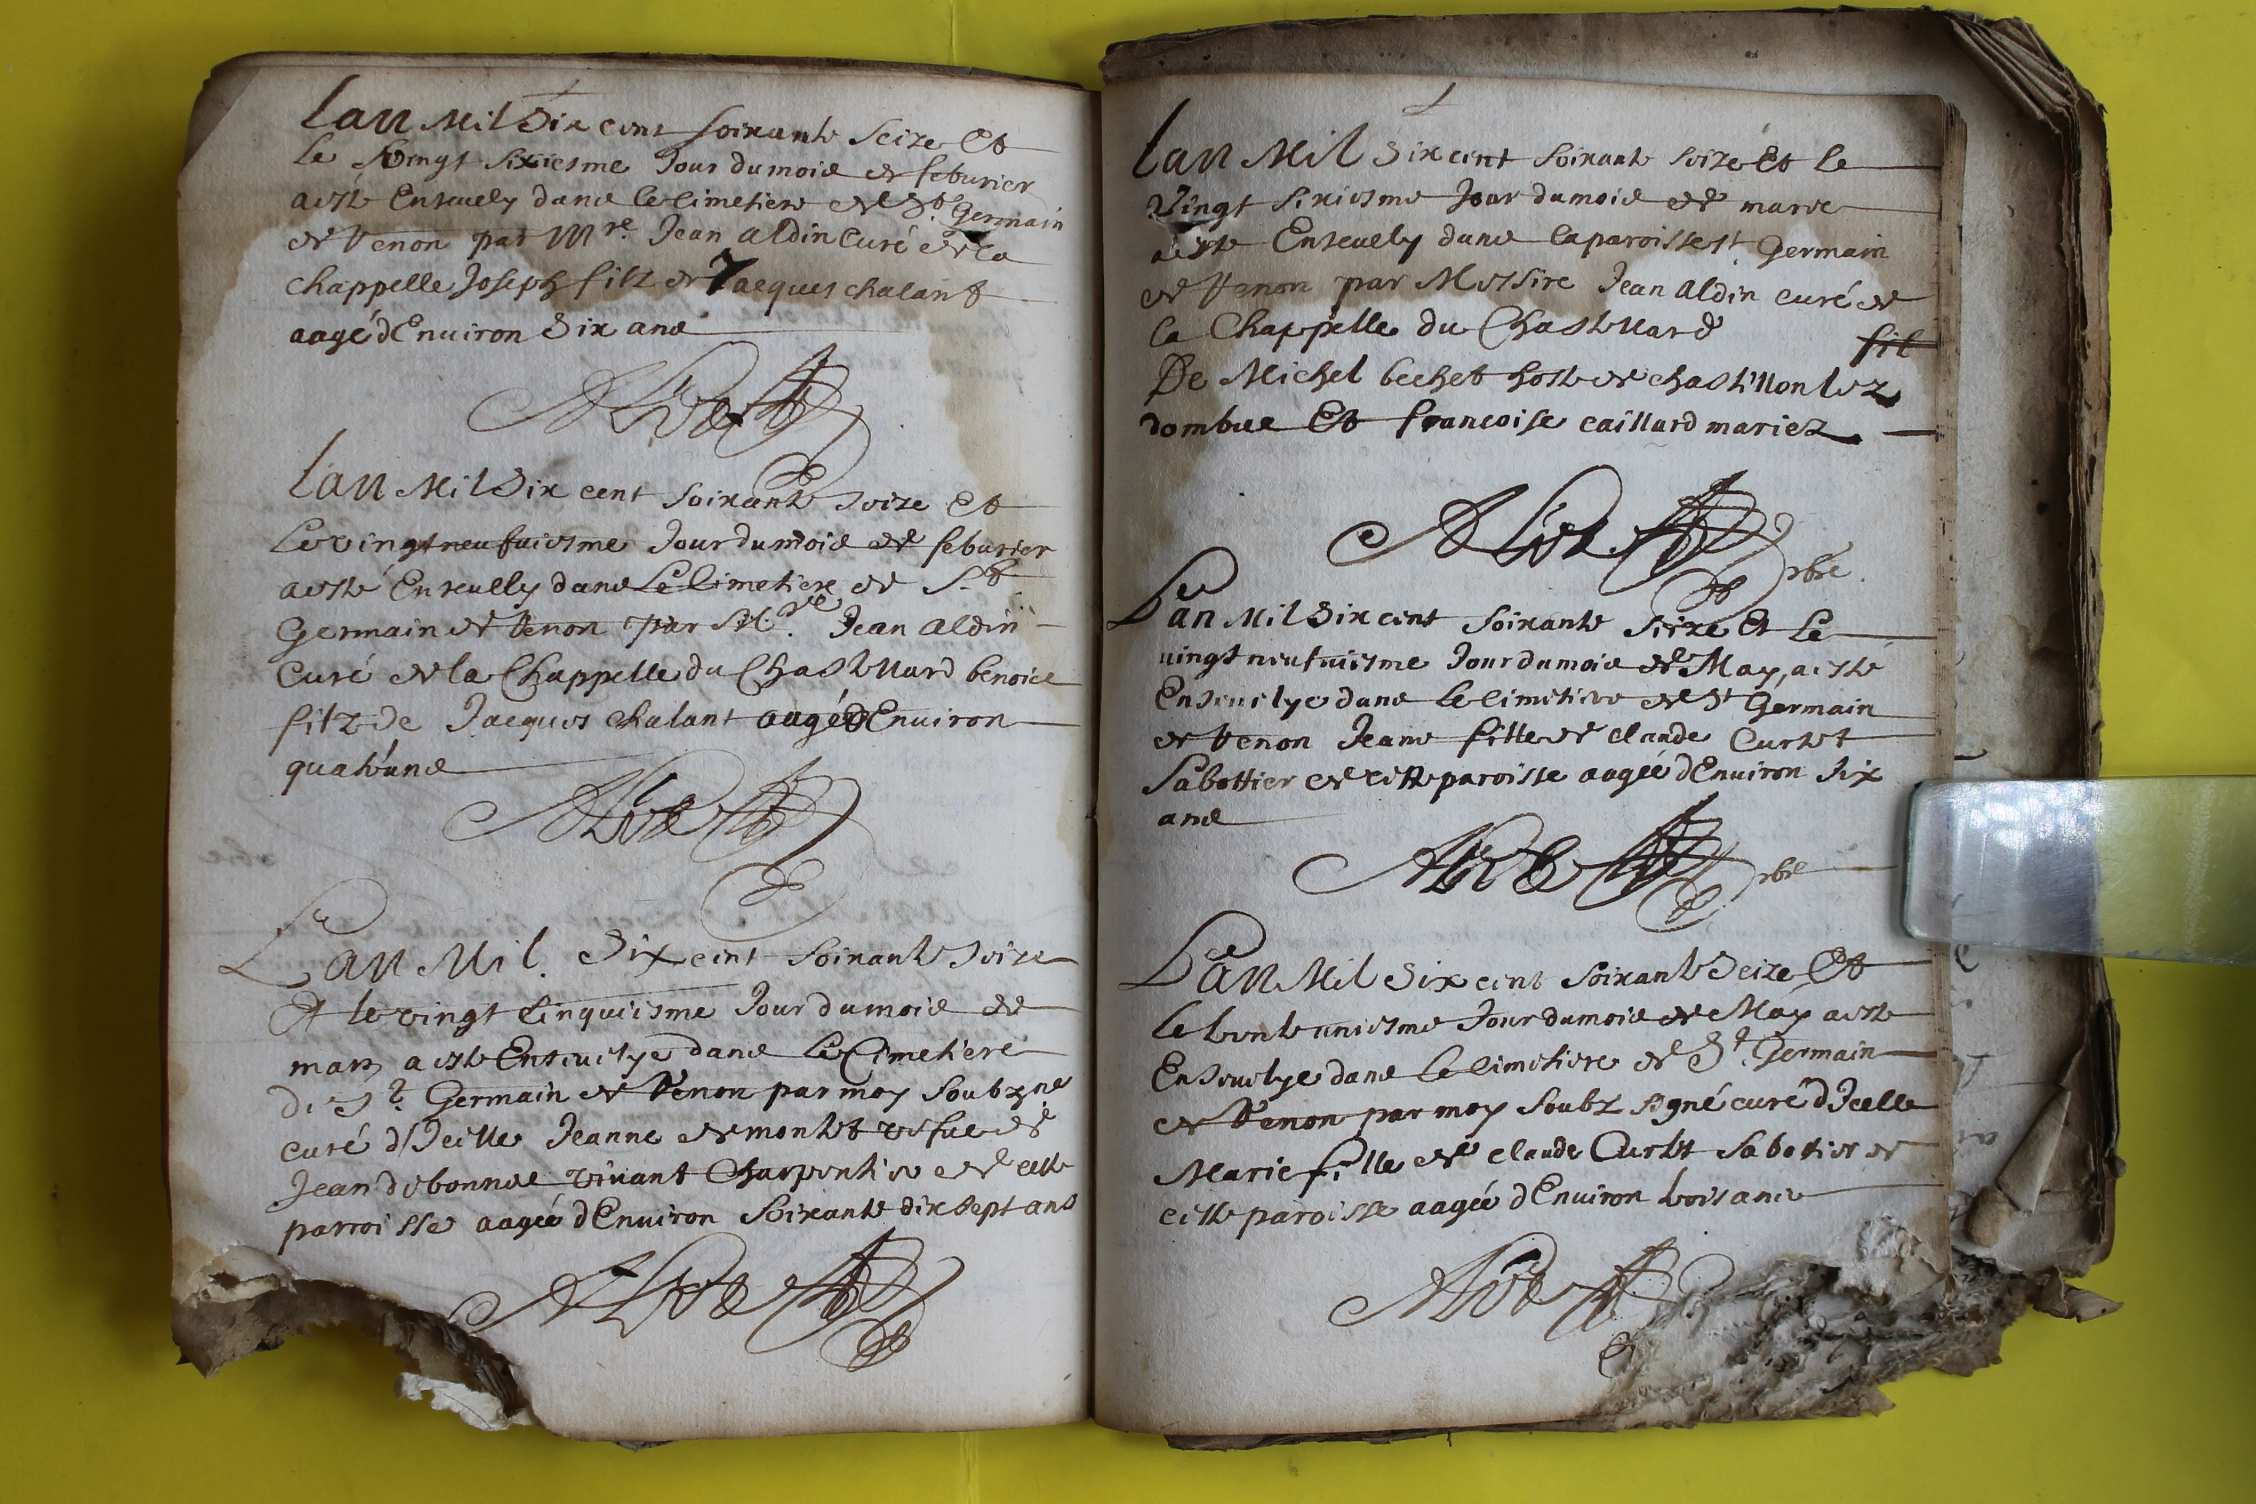 Lan Mil Six cent soixante seize Et
le vingt sixiesme Jour du mois de feburier
a esté Enseuely dans le cimetiere de St. Germain
de Venon par Mre. Jean Aldin Curé de la
chappelle Joseph filz de Jacques chalant
aagé dEnuiron Six ans
Lan Mil Six cent soixante seize Et
le vingt neufuiesme Jour du mois de feburier
a esté Enseuelly dans Le Cimetiere de St.
Germain de Venon par M.re Jean Aldin
Curé de la Chappelle du Chastellard benoict
filz de Jacques chalant aagé dEnuiron
quatre ans
Lan Mil. Six cent soixante seize
Et le vingt cinquiesme Jour du mois de
mars a esté Enseuelye dans Le Cimetiere
de St. Germain de Venon par moy soubzné
curé d'Icelle Jeanne de montet vefue de
Jean debonnes viuant Charpentier de cette
parroisse aagée dEnuiron Soixante dix sept ans
Lan Mil Six cent soixante seize Et le
Vingt sixiesme Jour du mois de mars
a esté Enseuely dans la paroisse St. Germain
de Venon par Messire Jean Aldin curé de
la Chappelle du Chastellard fil
De Michel bechet hoste de chastillon lez
dombes Et francoise caillard mariez
Lan Mil Six cent soixante seize Et Le
vingt neufuiesme Jour du mois de May, a esté
Enseuelye dans le cimetiere de St Germain
de Venon Jeane fille de claude Curtet
Sabottier de cette paroisse aagée dEnuiron Six
ans
Lan Mil Six cent soixante Seize Et
le trente uniesme Jour du mois de May a esté
Enseuelye dans le cimetiere de St. Germain
de Venon par moy soubz signé curé d'Icelle
Marie fille de claude Curtet Sabotier de
cette paroisse aagée dEnuiron trois ans